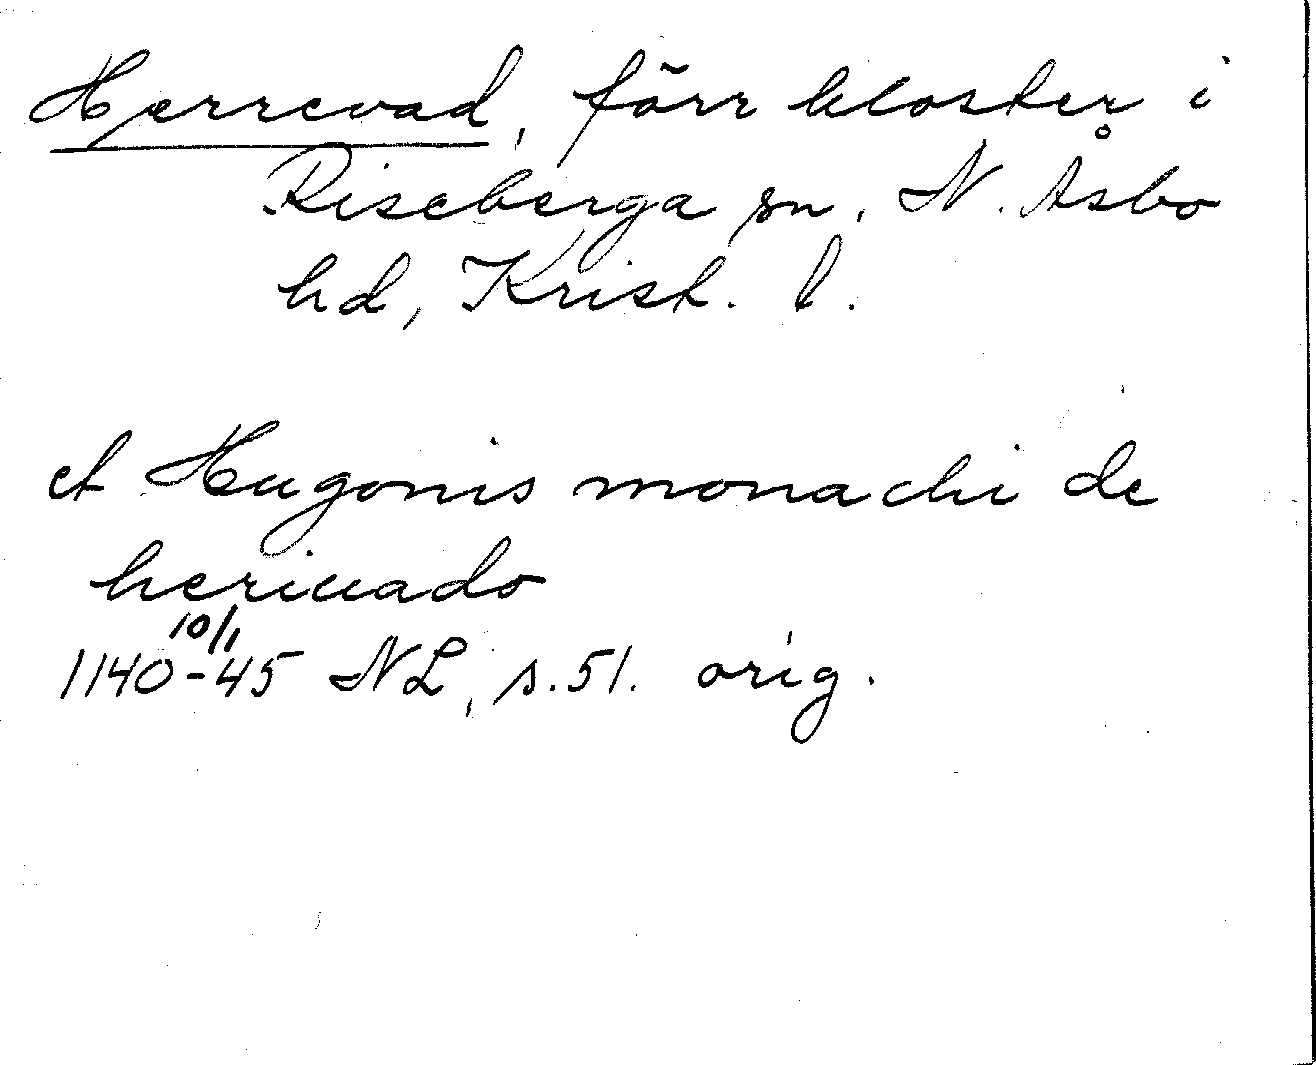 Herrevad, förr kloster i
Riseberga sn, N. Åsbo
hd, Krist. l.
et Hugonis monachi de
heriuado
10/1
1140-45 NL, s.51. orig.